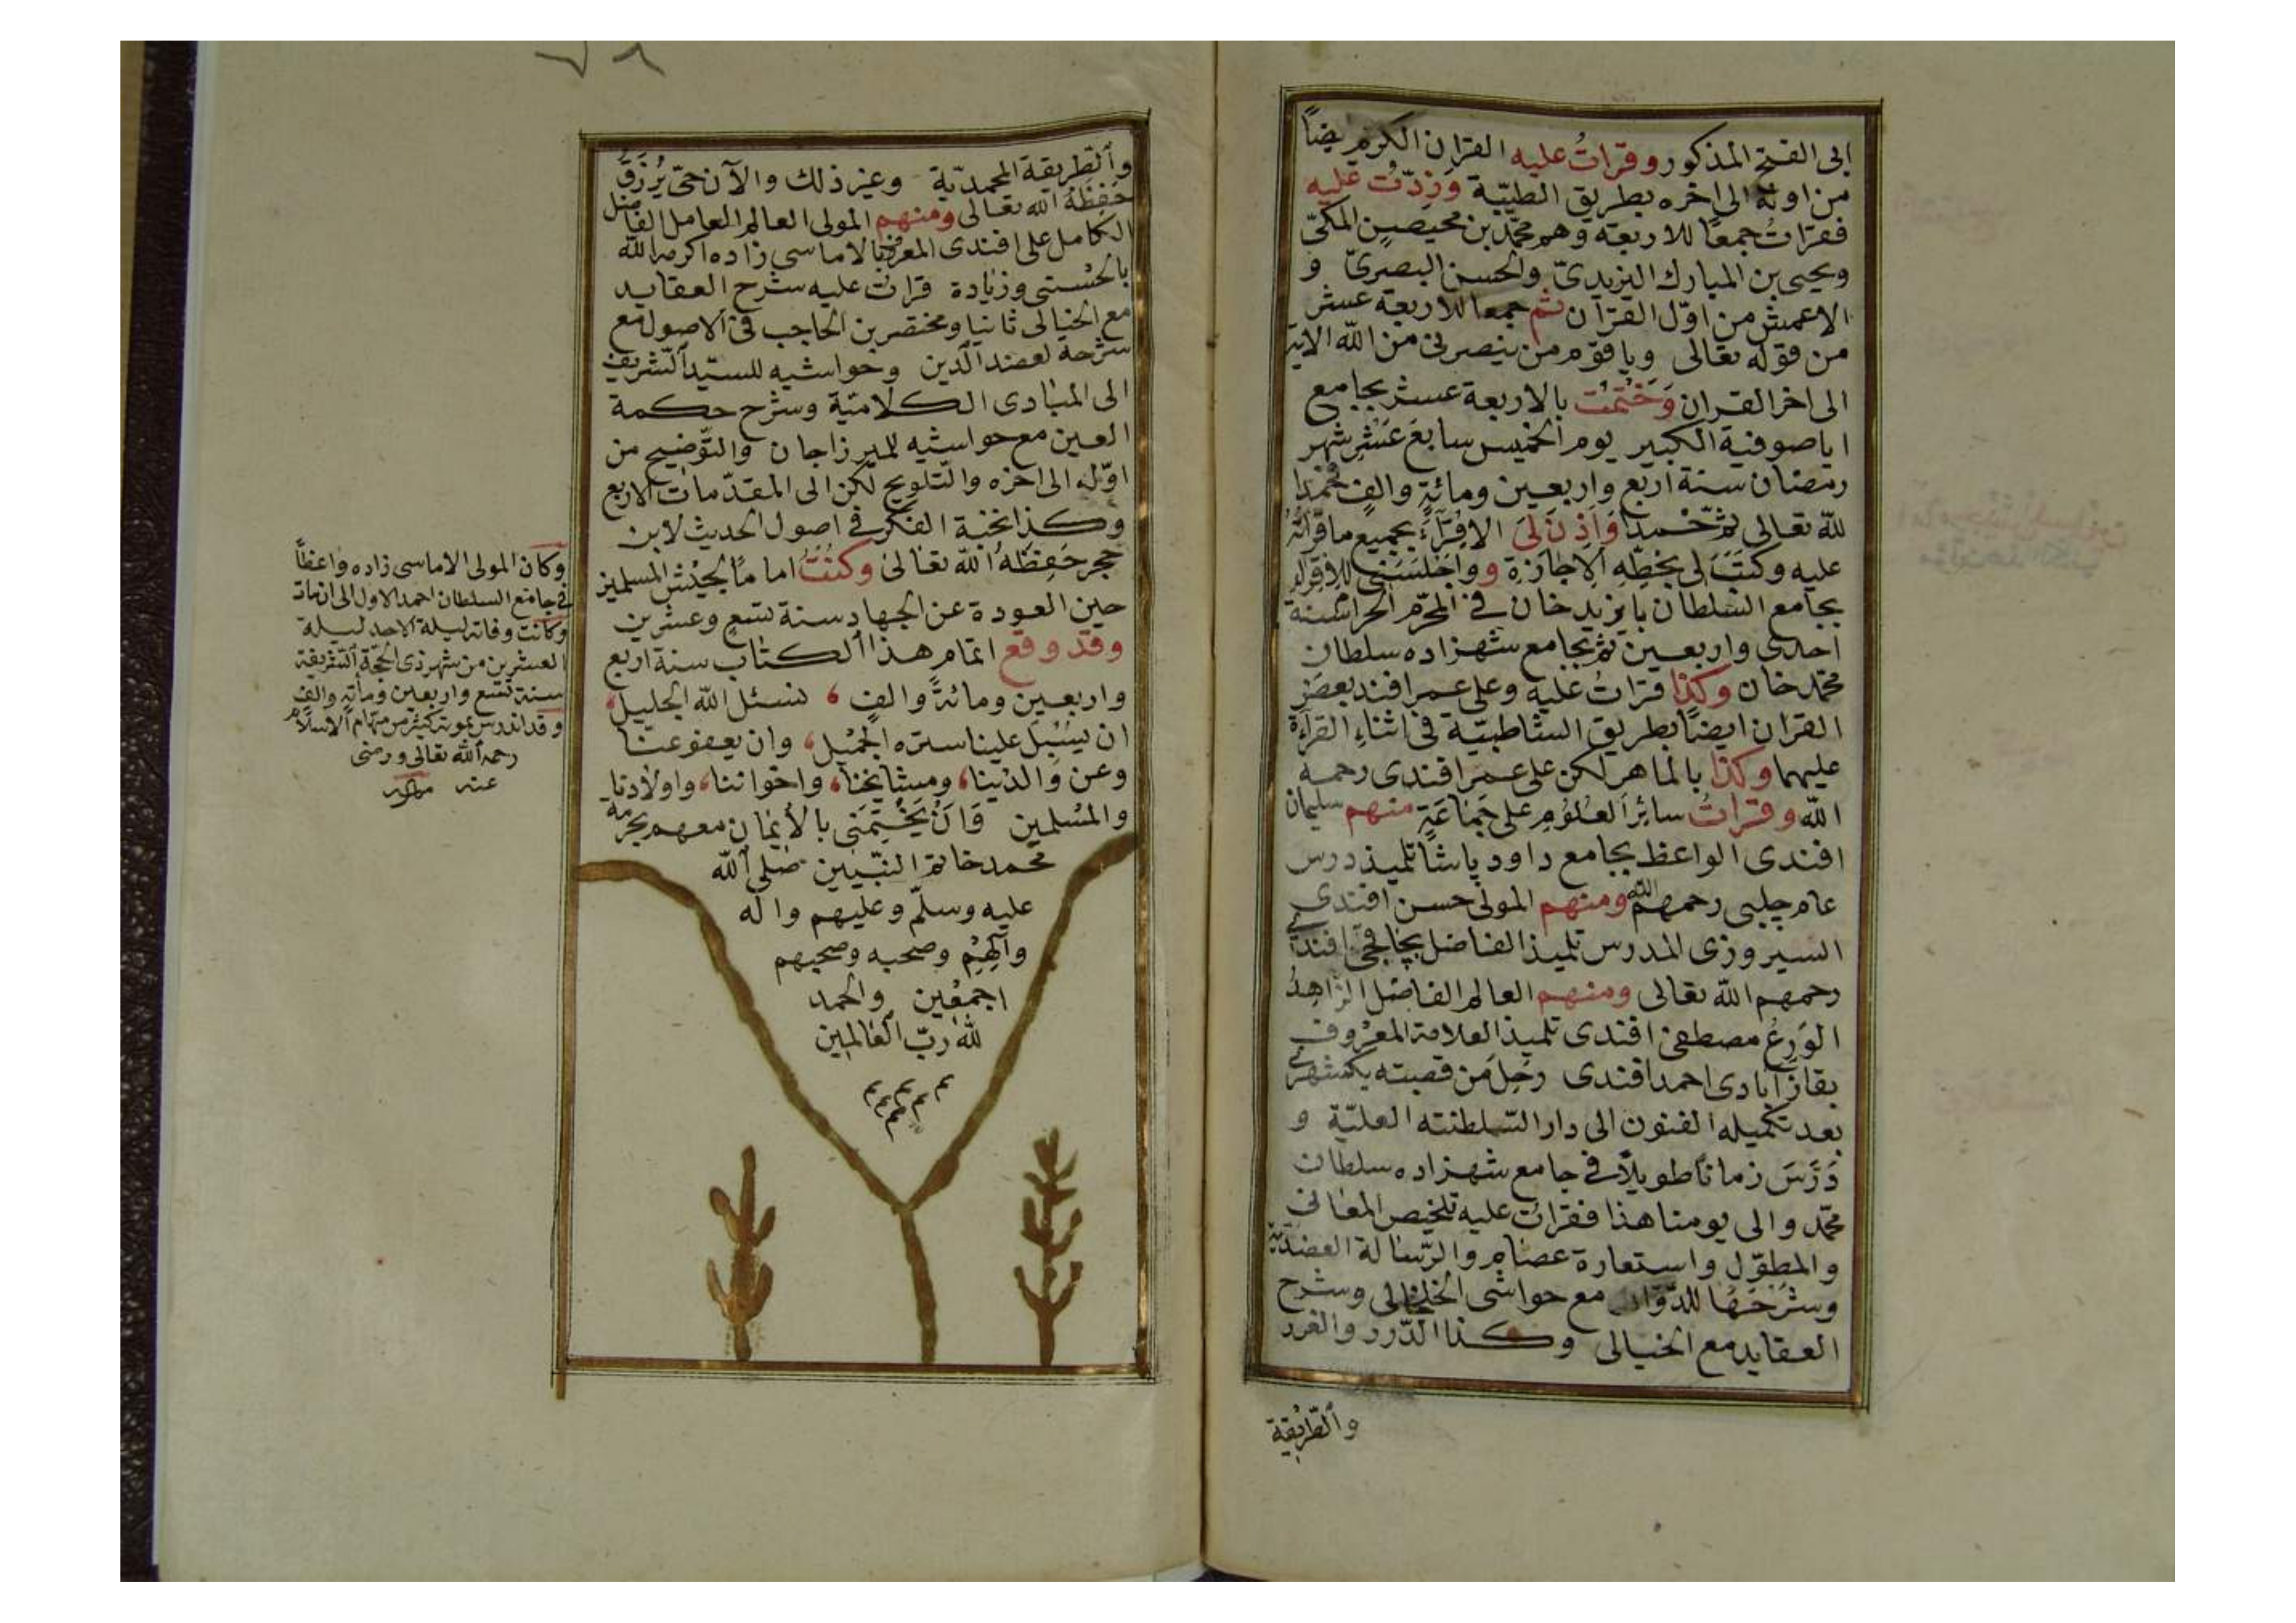 ابى الفتح المذكور وقرات عليه القران الكريم ايضًا
من اوله الى اخره بطريق الطيّبة وزدت عليه
فقرات جمعًا للاربعة وهم محمّد بن محيصين المكىّ
ويحيى بن المبارك اليزيدىّ والحسن البصرىّ و
الاعمش من اوّل القرآن ثم جمعا للاربعة عشر
من قوله تعالى ويا قوم من ينصرنى من الله الاية
الى اخر القران وَخَتمْتُ بالاربعة عشر بجامع
اياصوفية الكبير يوم الخميس سابعَ عَشَر شهر
رمضان سنة اربع واربعين ومائة والف فحمدا
لله تعالى ثم حمدا وَاَذِنَ لىَ الاقرَاءَ بجميع ما قراتُهُ
عليه وكتَبَ لى بخطّهِ الاِجَازة وواَجلسَنى للاِقراء
بجامع السّلطان بايزيد خان فى المحرّم الحرام سنة
احدى واربعين ثم بجامع شهزاده سلطان
محمّد خان وكذا قرات عليه وعلى عمر افندى بعضَ
القران ايضًا بطريق الشاطبيّة فى اثناء القراءة
عليهما وكذا بالماهر لكن على عمر افندى رحمه
الله وقرات سائِرَ العلُومِ على جَمَاعَةٍ منهم سليمان
افندى الواعظ بجامع داود پاشا تلميذ درس
عام چلبى رحمهم الله ومنهم المولى حسن افندى
السيروزى المدرس تلميذ الفاضل افندى
رحمهم الله تعالى ومنهم العالم الفاضل الزّاهدُ
الوَرِعُ مصطفى افندى تلميذ العلامة المعْرُوف
بقازآبادى احمد افندى رحَل من قصبته يكيشهر
بعد تكميله الفنون الى دار السّلطنته العليّة و
دَرَّسَ زمانًا طويلاً فى جامع شهزاده سلطان
محمّد والى يومنا هذا فقرات عليه تلخيص المعانى
والمطوّل واستعارة عصام والرّسالة العضديّة
وشرْحَهَا للدّوّانى مع حواشى الخلخالى وشرح
العقايد مع الخيالى وكذا الدّرر والغرر
والطّريقة
والطّريقة المحمديّة وغير ذلك والآن حىّ يُرْزَقُ
حَفِظَهُ الله تعالى ومنهم المولى العالم العامل الفاضل
الكامل على افندى المعروف بالاماسى زاده اكرمه الله
بالحُسنى وزيادة قرات عليه شرح العقايد
مع الخيالى ثانيا ومختصر بن الحاجب فى الاصول مع
شرحه لعضد الدين وحواشيه للسيّد الشريف
الى المبادى الكلاميّة وشرح حكمة
العين مع حواشيه للميرزاجان والتّوضيح من
اوّله الى اخره والتّلويح لكن الى المقدّمات الاربع
وكذا نخبة الفكر فى اصول الحديث لابن
حجر حَفِظَهُ الله تعالى وكنْتُ امامًا لجيْش المسلمين
حين العودة عن الجهاد سنة تسع وعشرين
وقد وقع اتمام هذا الكتاب سنة اربع
واربعين ومائةً والف، نسئل الله الجليل،
ان يسْبِلَ علينا ستره الجَميْل، وان يعفو عنّا
وعن والدَيْنا، ومشايخنا، واخواننا، واولادنا
والمُسلمين وَاَنْ يَخْتِمَنى بالأيمان معهم بحرمة
محمد خاتم النّبيين صلى الله
عليه وسلّم وعليهم واله
وآلِهِمْ وصحبه وصحبهم
اجمعين والحمد
لله ربّ العالمين
وكان المولى الاماسى زاده واعظًا
فى جامع السلطان احمد الاول الى ان مات
وكانت وفاته ليلة الاحد ليلة
العشرين من شهر ذى الحجّة الشريفة
سنة تسع واربعين ومأته والف
وقد اندرس بموته كثير من مهام الاسلام
رحمه الله تعالى ورضى
عنه